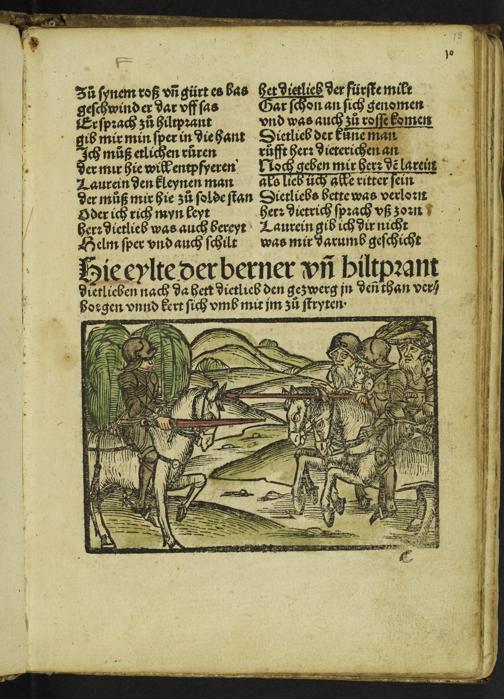 10
Zů synem roß vñ gürt es bas
geschwind er dar vff sas
Er sprach zů hiltprant
gib mir min sper in die hant
Ich můß etlichen rüren
der mir hie will entpfyeren
Laurein den kleynen man
der můß mir hie zů solde stan
Oder ich rich myn leyt
herr dietlieb was auch bereyt
Helm sper vnd auch schilt
het dietlieb der fürste milt
Gar schon an sich genomen
vnd was auch zů rosse komen
Dietlieb der küne man
rüfft herr dieterichen an
Noch geben mir herr dē larein
als lieb üch alle ritter sein
Dietliebs bette was verlorn
herr dietrich sprach vß zorn
Laurein gib ich dir nicht
was mir darumb geschicht
Hie eylte der berner vñ hiltprant
dietlieben nach da hett dietlieb den gezwerg in deñ than ver⸗
borgen vnnd kert sich vmb mit jm zů stryten.